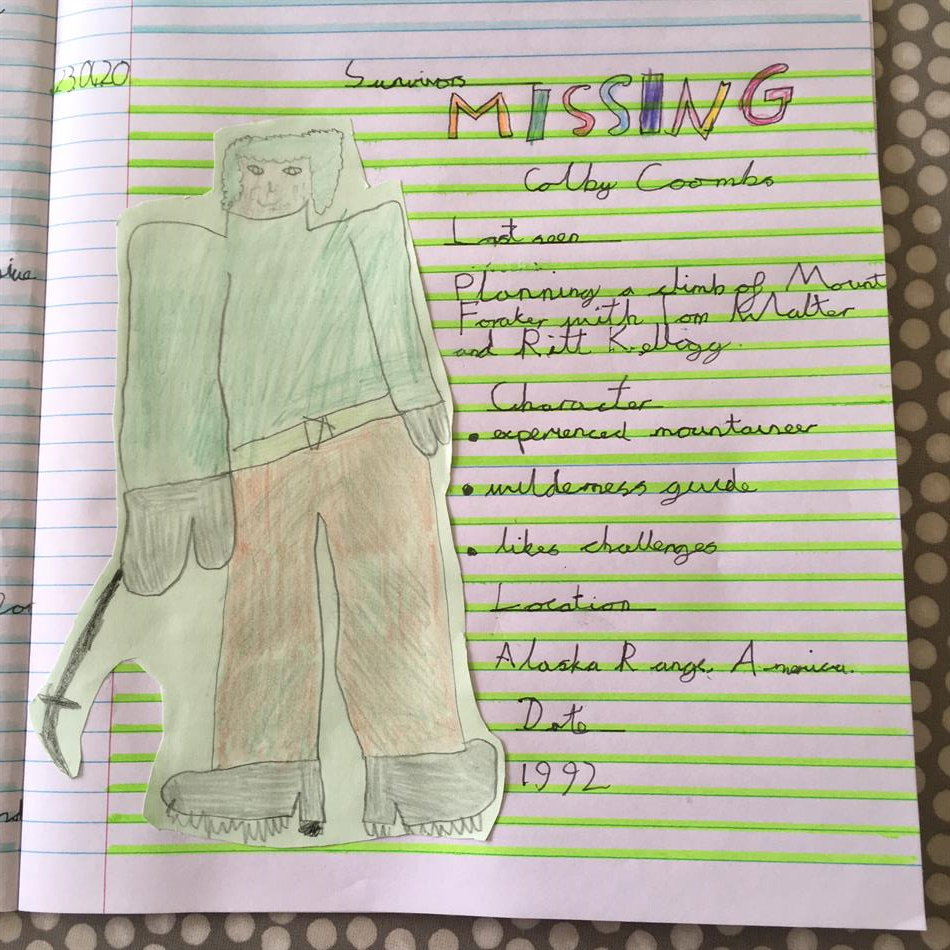 23.04.20
Survivors
MISSING
Colby Coombs
Last seen
Planning a climb of Mount
Foraker with Tom Walter
and Ritt Kellogg.
Character
• experienced mountaineer
• wilderness guide
• likes challenges
Location
Alaska Range. America.
Date
1992